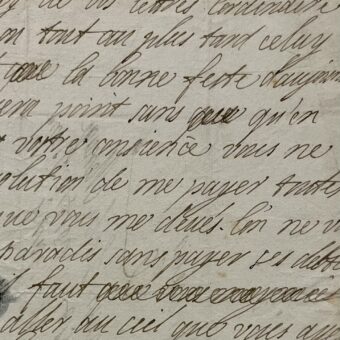 de vos lettres lordinaire
on tout au plus tard celuy
que la bonne feste daujour
sera point sans que qu'en
votre conscience vous ne
solution de me payer toutes
que vous me devés. l'on ne v
paradis sans payer ses dette
il faut que vous
aller au ciel que vous ay